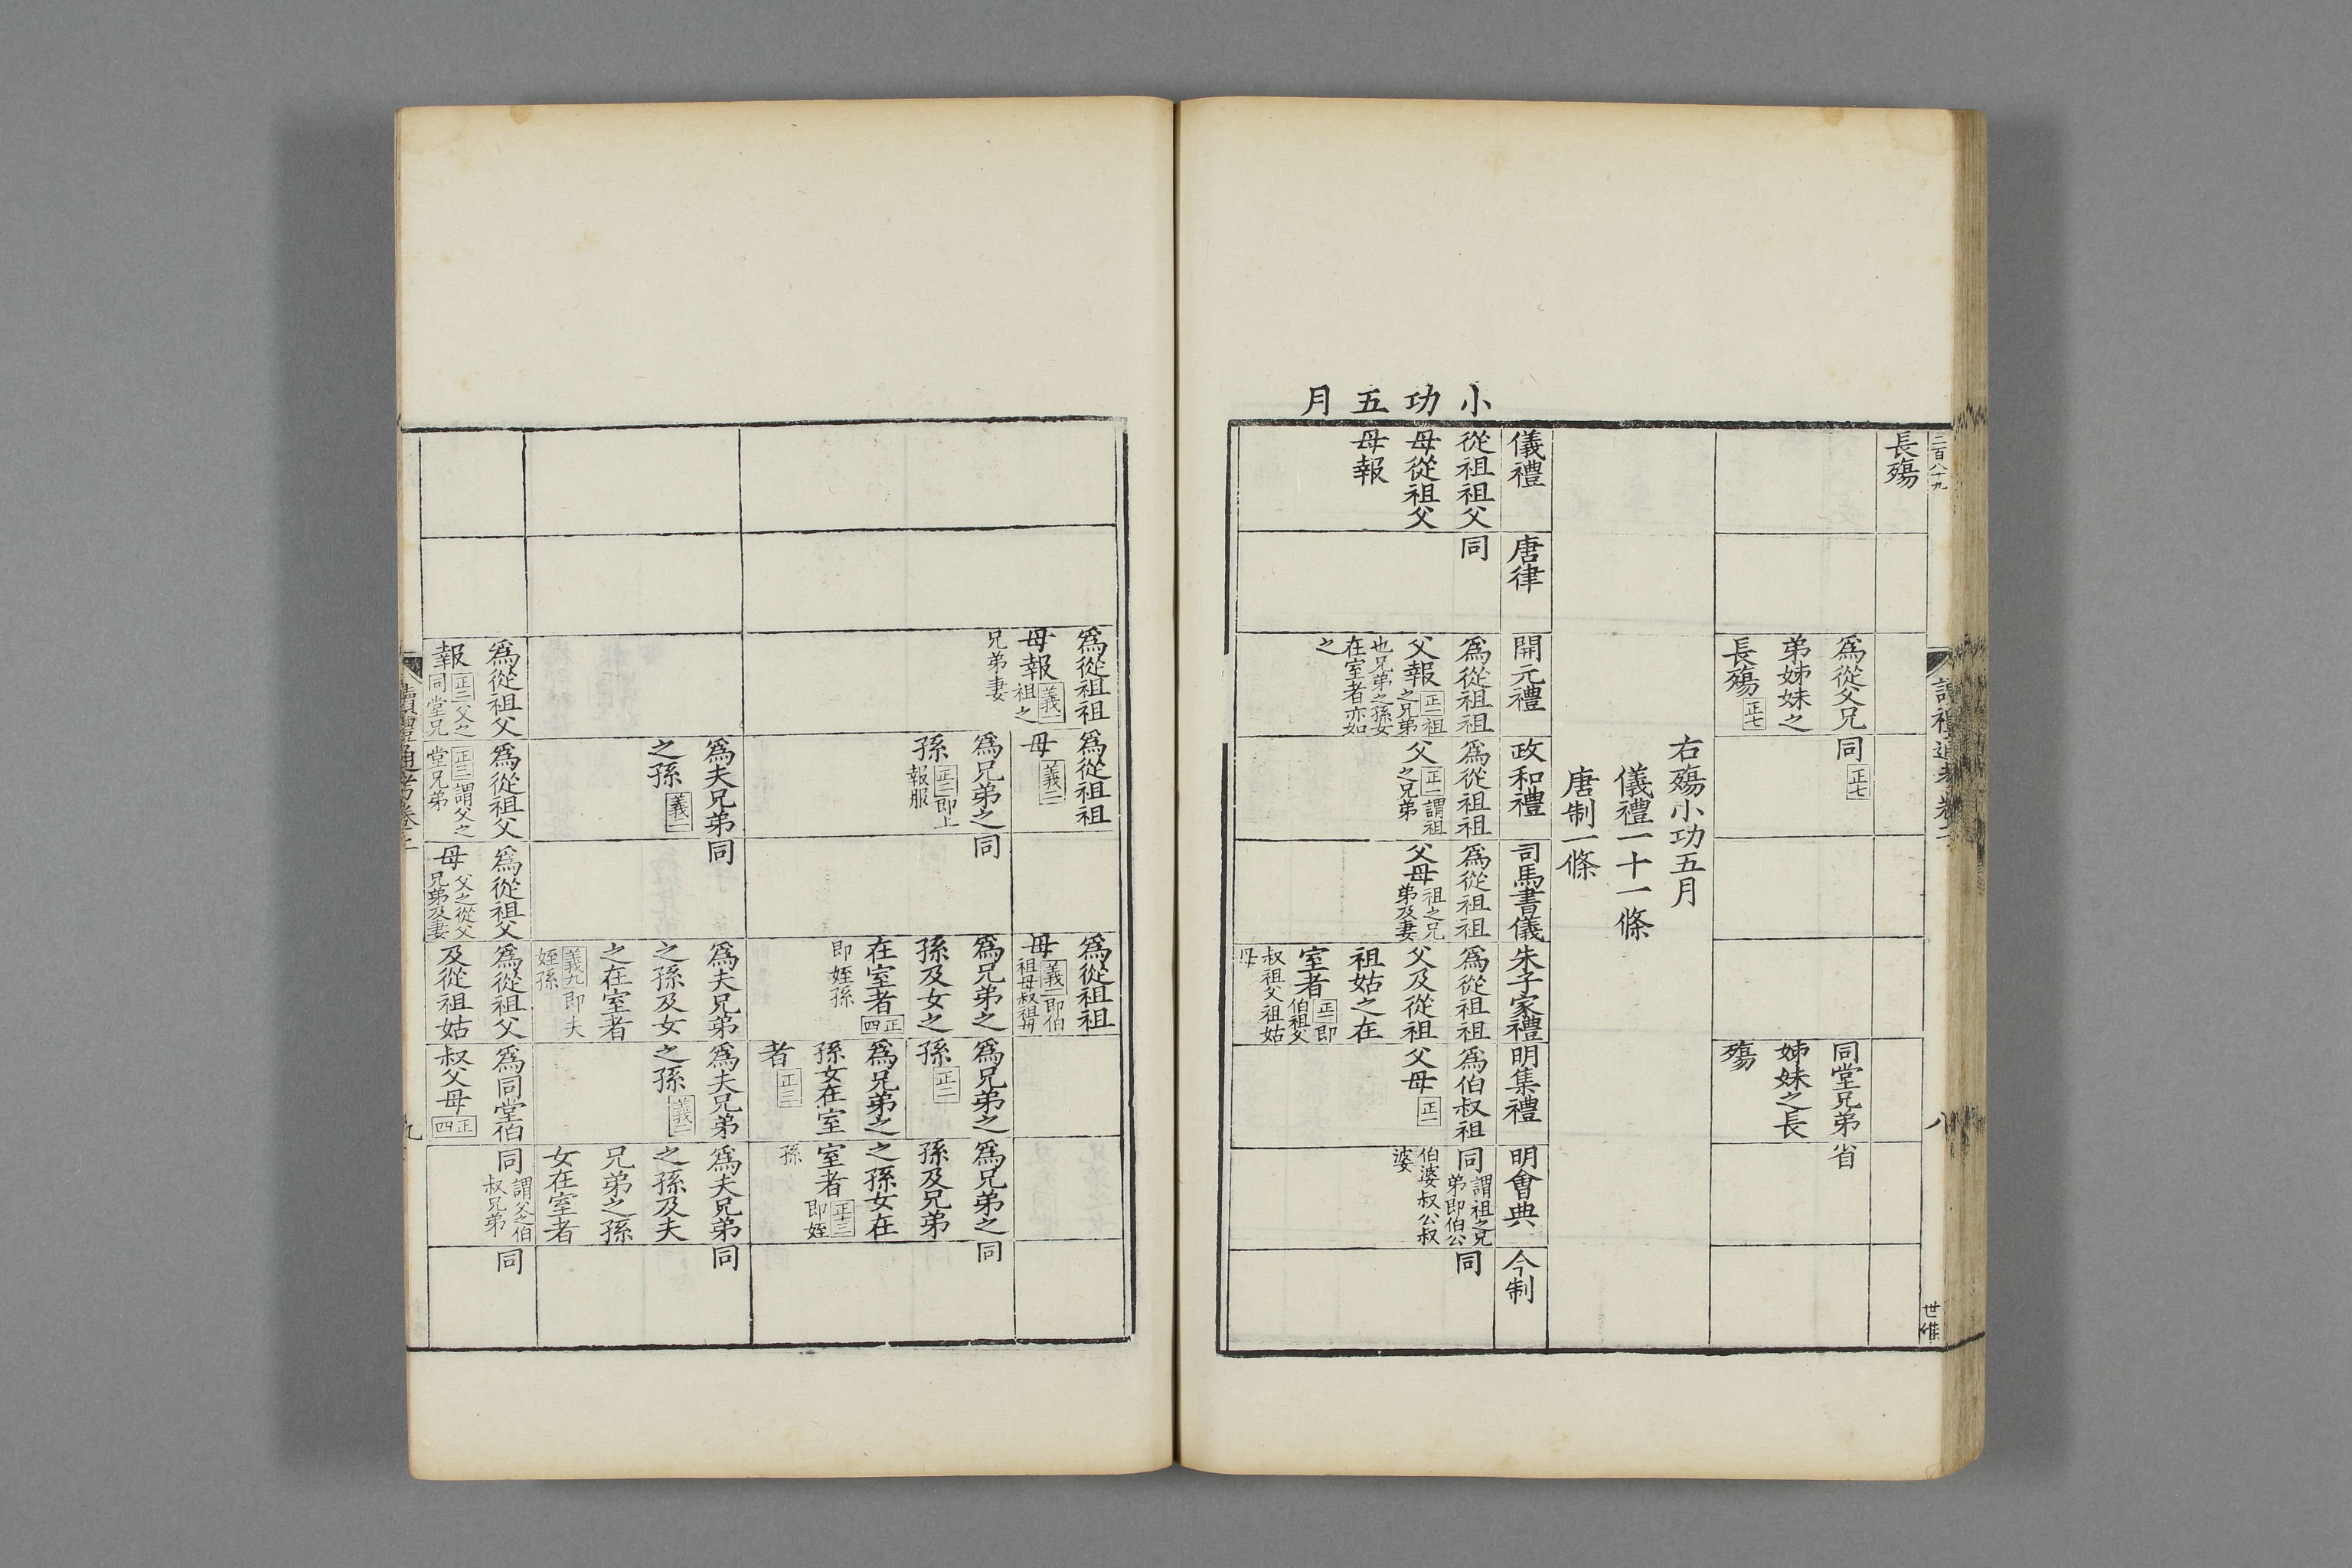 二百八十九
讀禮通考卷二
八
世
長殤
爲從父兄
弟姊妹之
長殤正七
同正七
同堂兄弟
姊妹之長
殤
省
右殤小功五月
儀禮一十一條
唐制一條
小功五月
儀禮
唐律
開元禮
政和禮
司馬書儀
朱子家禮
明集禮
明會典
今制
從祖祖父
母從祖父
母報
同
爲從祖祖
父報正二祖
之兄弟
也兄弟之孫女
在室者亦如
之
爲從祖祖
父正一謂祖
之兄弟
爲從祖祖
父母祖之兄
弟及妻
爲從祖祖
父及從祖
祖姑之在
室者正二即
伯祖父
叔祖父祖姑
母
爲伯叔祖
父母正一
同謂祖之兄
弟即伯公
伯婆叔公叔
婆
同
爲從祖祖
母報義一
祖之
兄弟妻
爲從祖祖
母義二
爲從祖祖
母義一即伯
祖母叔祖母
爲兄弟之
孫正二即上
報服
同
爲兄弟之
孫及女之
在室者正四
即姪孫
爲兄弟之
孫正二
爲兄弟之
孫女在室
者正三
爲兄弟之
孫及兄弟
之孫女在
室者正三
即姪
孫
同
爲夫兄弟
之孫義二
同
爲夫兄弟
之孫及女
之在室者
義九即夫
姪孫
爲夫兄弟
之孫義二
爲夫兄弟
之孫及夫
兄弟之孫
女在室者
同
爲從祖父
報正三父之
同堂兄
爲從祖父
正三謂父之
堂兄弟
爲從祖父
母父之從父
兄弟及妻
爲從祖父
及從祖姑
爲同堂伯
叔父母正四
同謂父之伯
叔兄弟
同
讀禮通考卷二
九